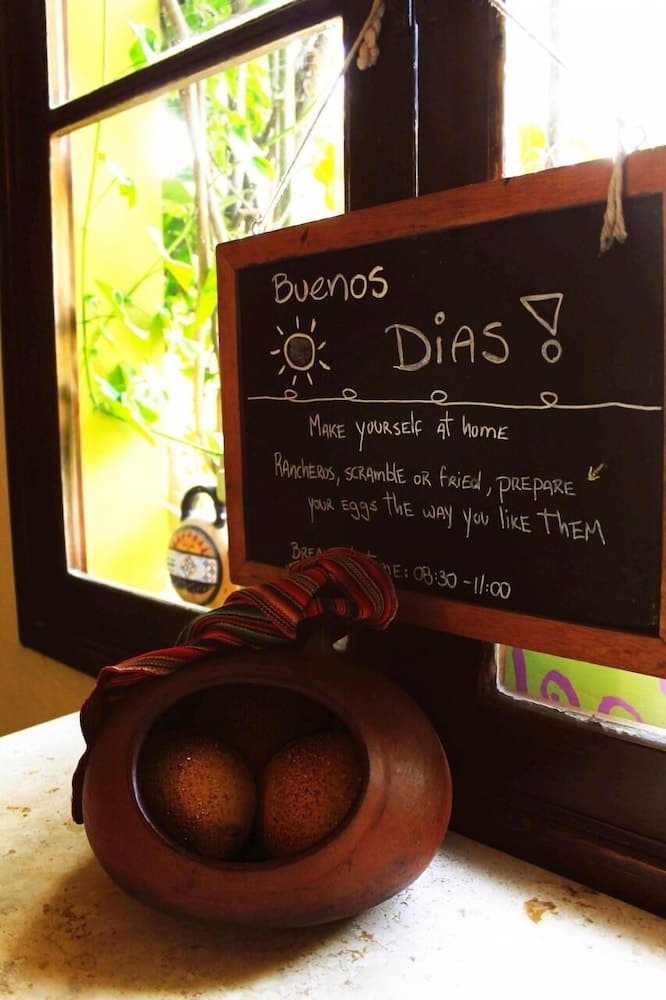 Buenos
DiAS!
MAKE yourself at home
RANCHEROS, SCRAMBLE OR FRIED, PREPARE
your eggs the way you like THEM
08:30 - 11:00